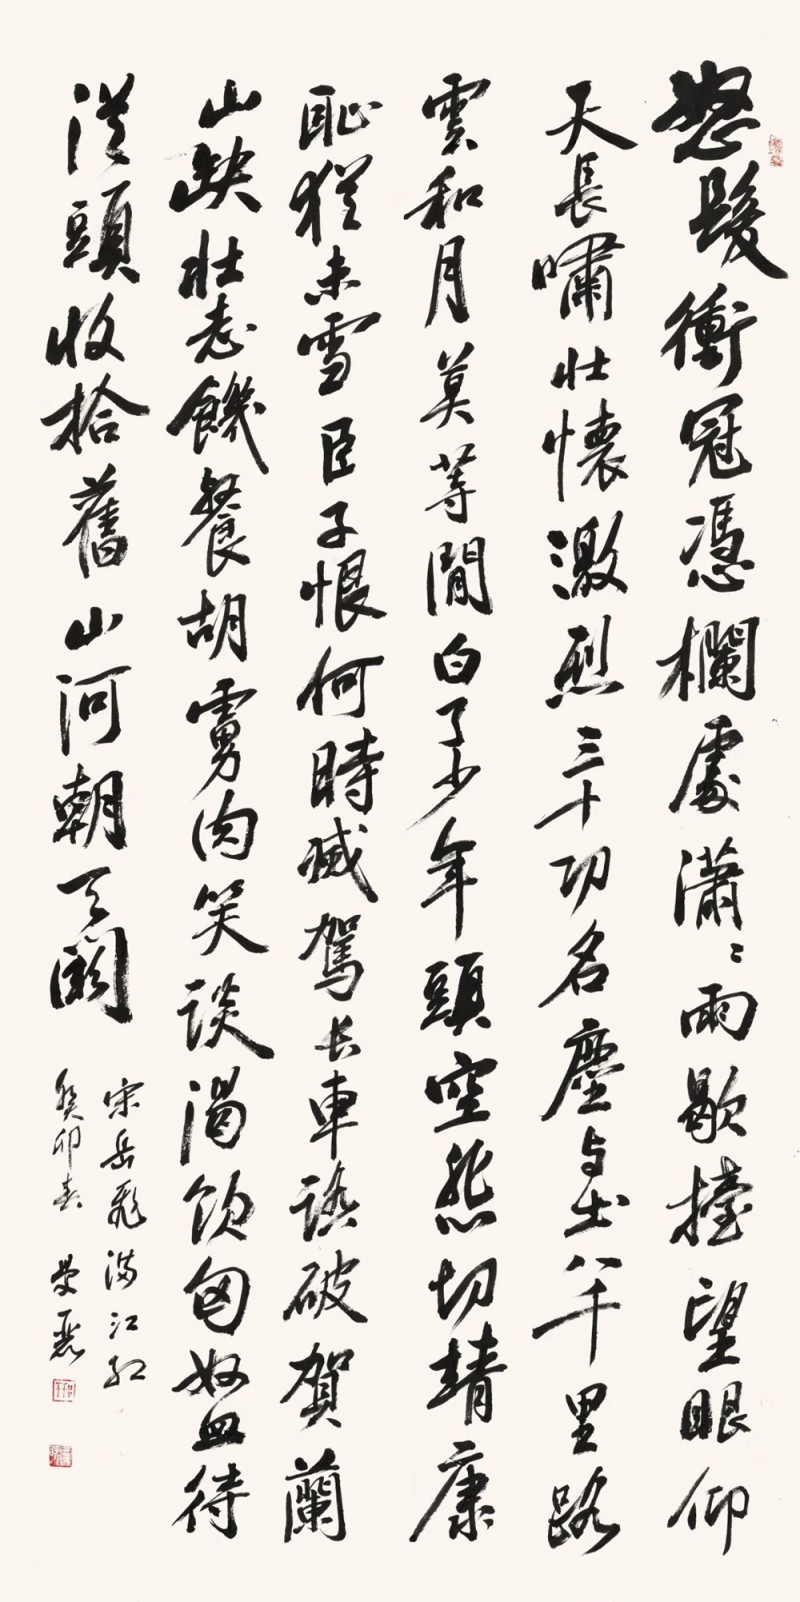 怒髮衝冠憑欄處瀟〻雨歇擡望眼仰
天長嘯壯懷激烈三十功名塵与土八千里路
雲和月莫等閒白了少年頭空悲切靖康
恥猶未雪臣子恨何時滅駕长車踏破賀蘭
山缺壯志饑餐胡虜肉笑談渴飲匈奴血待
從頭收拾舊山河朝天闕
宋岳飛滿江紅
癸卯春